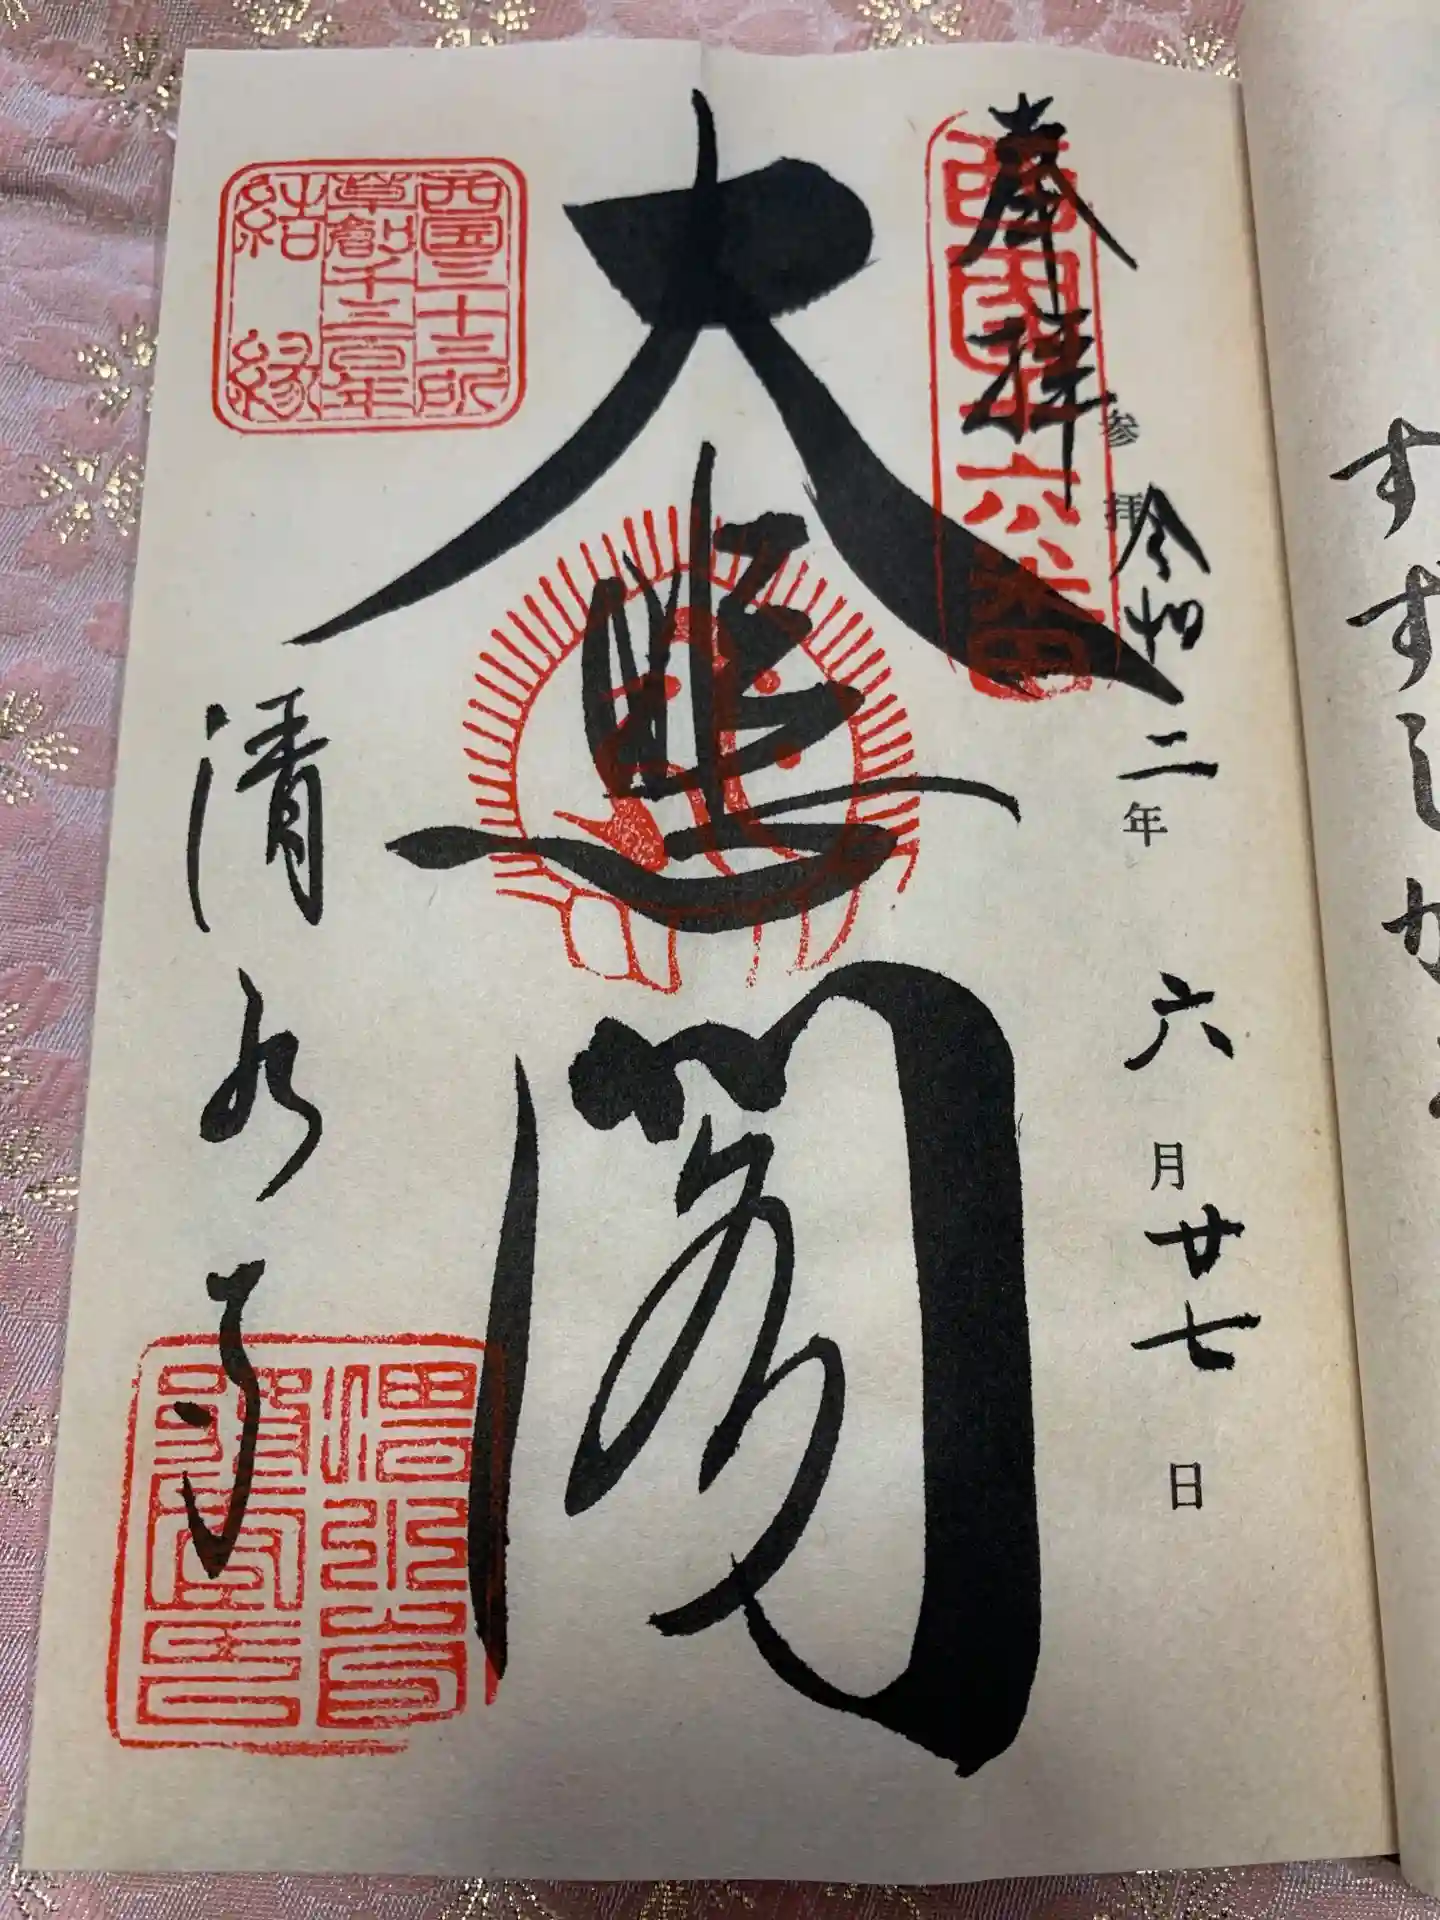 奉拝
西国十六番
参拝
令和二年六月廿七日
大悲閣
西国三十三所
草創千三百年
結縁
清水寺
すずしか